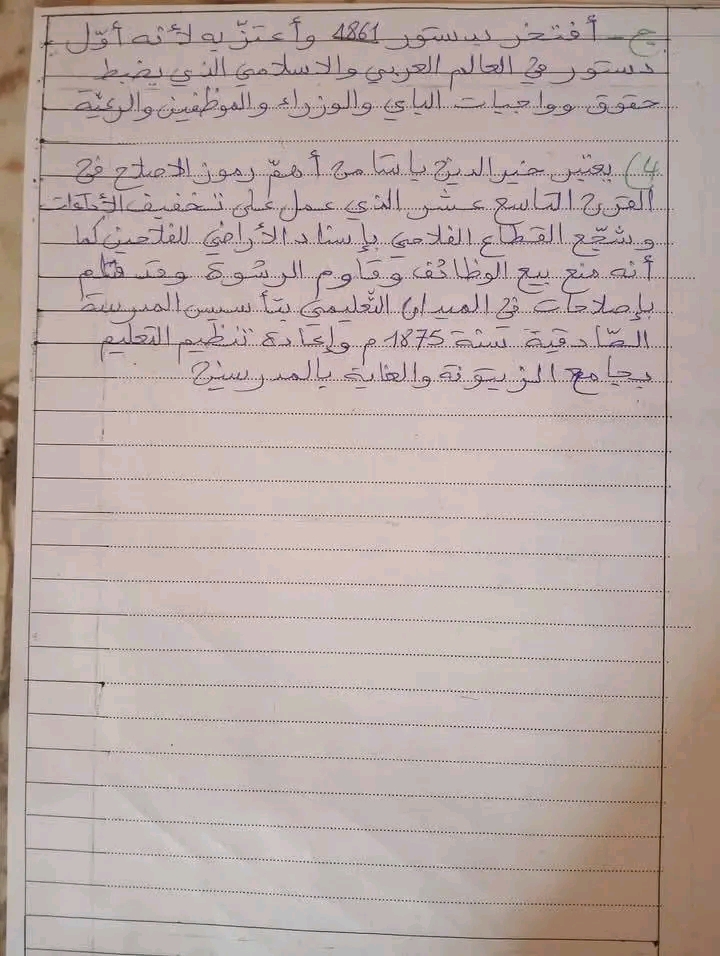 ج - أفتخر بدستور 1861 وأعتزّ به لأنه أوّل
دستور في العالم العربي والاسلامي الذي يضبط
حقوق وواجبات الباي والوزراء والموظفين والرعيّة
4) يعتبر خير الدين باشا من أهمّ رموز الاصلاح في
القرن التاسع عشر الذي عمل على تخفيف الأداءات
وشجّع القطاع الفلاحي بإسناد الأراضي للفلاحين كما
أنه منع بيع الوظائف وقاوم الرشوة وقد قام
بإصلاحات في الميدان التّعليمي بتأسيس المدرسة
الصّادقية سنة 1875 م وإعادة تنظيم التعليم
بجامع الزيتونة والعناية بالمدرسين